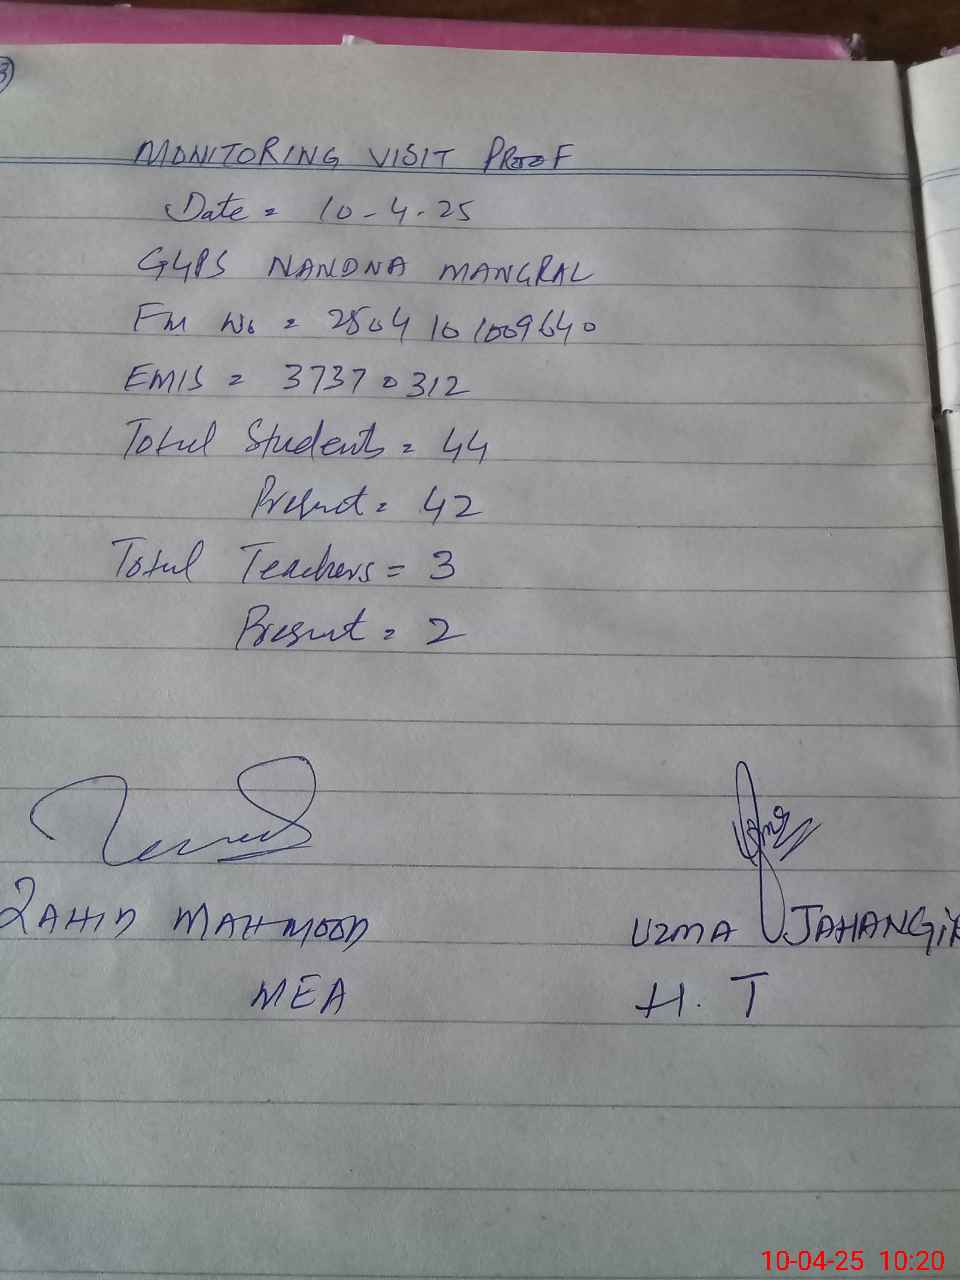 3
MONITORING VISIT PROOF
Date = 10-4-25
GGPS NANDNA MANGRAL
Fm No = 2504101009640
EMIS = 37370312
Total Students = 44
Present = 42
Total Teachers = 3
Present = 2
ZAHID MAHMOOD
UZMA JAHANGIR
MEA
H.T
10-04-25 10:20